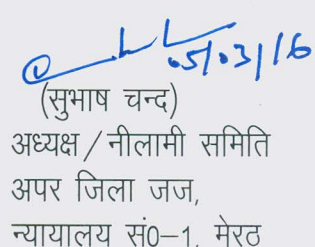 05/03/16
(सुभाष चन्द)
अध्यक्ष/नीलामी समिति
अपर जिला जज,
न्यायालय सं0–1, मेरठ